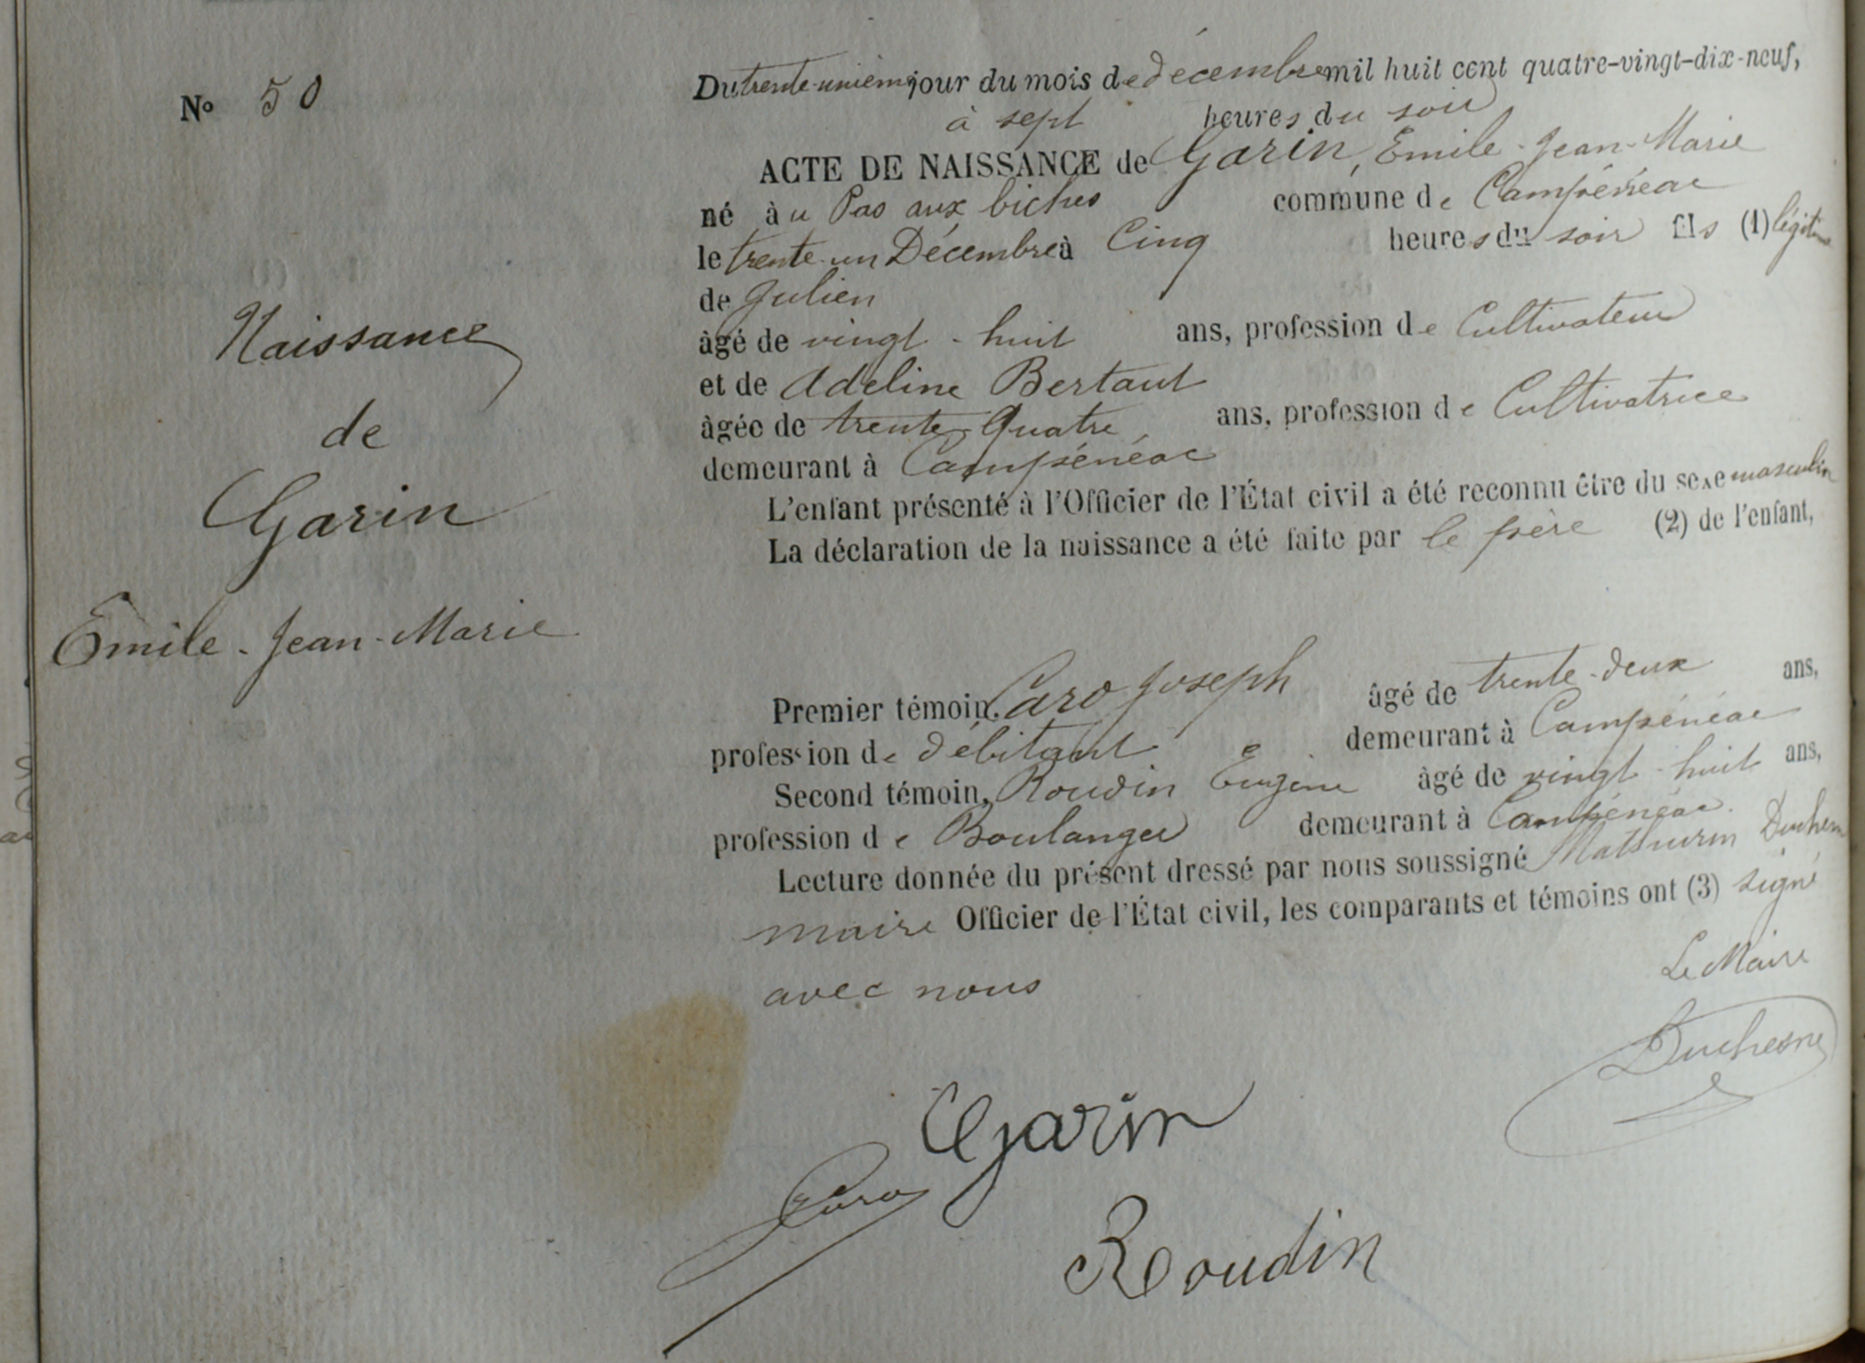 N° 50
Naissance
de
Garin
Emile-Jean-Marie
Du trente-unième jour du mois de décembre mil huit cent quatre-vingt-dix-neuf,
à sept heures du soir
ACTE DE NAISSANCE de Garin, Emile-Jean-Marie
né à u Pas aux biches commune de Campénéac
le trente-un Décembre à Cinq heures du soir fils (1) légitime
de Julien
âgé de vingt-huit ans, profession de Cultivateur
et de Adeline Bertaut
âgée de trente-Quatre ans, profession de Cultivatrice
demeurant à Campénéac
L'enfant présenté à l'Officier de l'État civil a été reconnu être du sexe masculin
La déclaration de la naissance a été faite par le père (2) de l'enfant,
Premier témoin, Caro Joseph âgé de trente-deux ans,
profession de débitant demeurant à Campénéac
Second témoin, Roudin Eugène âgé de vingt-huit ans,
profession de Boulanger demeurant à Campénéac.
Lecture donnée du présent dressé par nous soussigné Mathurin Duchesne
maire Officier de l'État civil, les comparants et témoins ont (3) signé
avec nous
Le Maire
Duchesne
Garin
Caro
Roudin